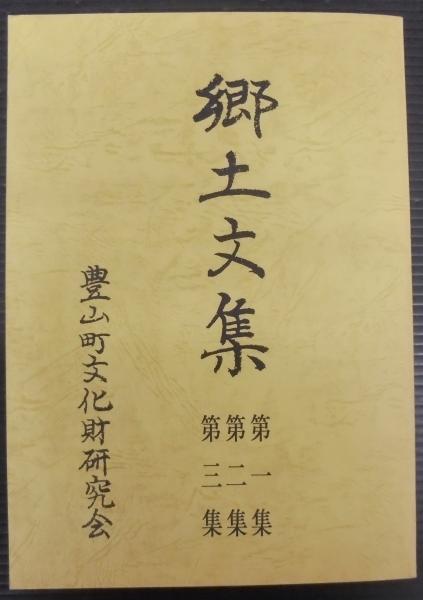 郷土文集
第一集
第二集
第三集
豊山町文化財研究会